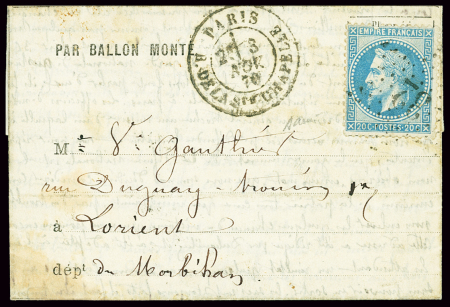 PAR BALLON MONTÉ
PARIS
R. DE LA STE CHAPELLE
2E
8
NOV.
70
EMPIRE FRANÇAIS
20 C POSTES 20 C
Mme Ve Gauthier
rue Duguay-trouin, 17
à Lorient
dépt du Morbihan